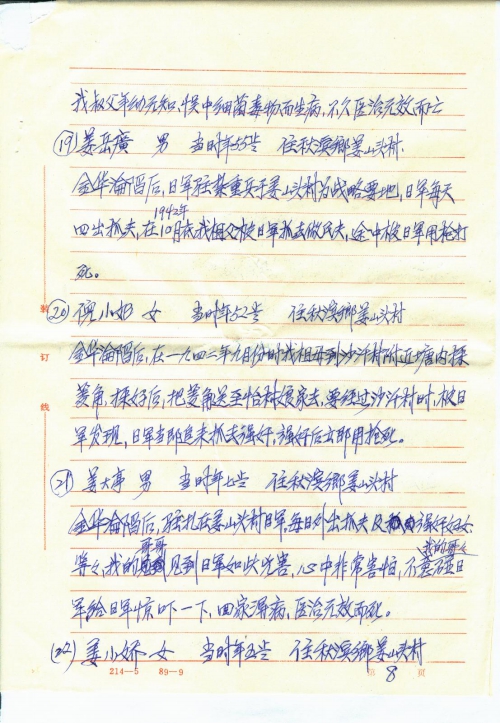 我叔父年幼无知、误中细菌毒物而生病,不久医治无效而亡
(19) 姜岳廣 男 当时年55岁 住秋滨鄉姜山头村
金华淪陷后,日軍驻紮重兵于姜山头村为战略要地,日軍每天
1942年
四出抓夫,在10月 我祖父被日軍抓去做民夫,途中被日軍用枪打
死。
装
(20) 倪小妲 女 当时年52岁 住秋滨鄉姜山头村
订
金华淪陷后,在一九四二年九月份时我祖母到沙沂村附近塘内採
菱角,採好后,把菱角送至 村娘家去,要经过沙沂村时,被日
线
軍发现,日軍当即追来抓去强奸,强奸后立即用枪死。
(21) 姜大亭 男 当时年七岁 住秋滨鄉姜山头村
金华淪陷后,驻扎在姜山头村日軍,每日外出抓夫及 强奸妇女
哥哥 我的哥哥
等々,我的 见到日軍如此凶害,心中非常害怕,不意碰日
軍给日軍惊吓一下,回家得病,医治无效而死。
(22) 姜小娇 女 当时年五岁 住秋滨鄉姜山头村
214—5 89—9 第 8 页